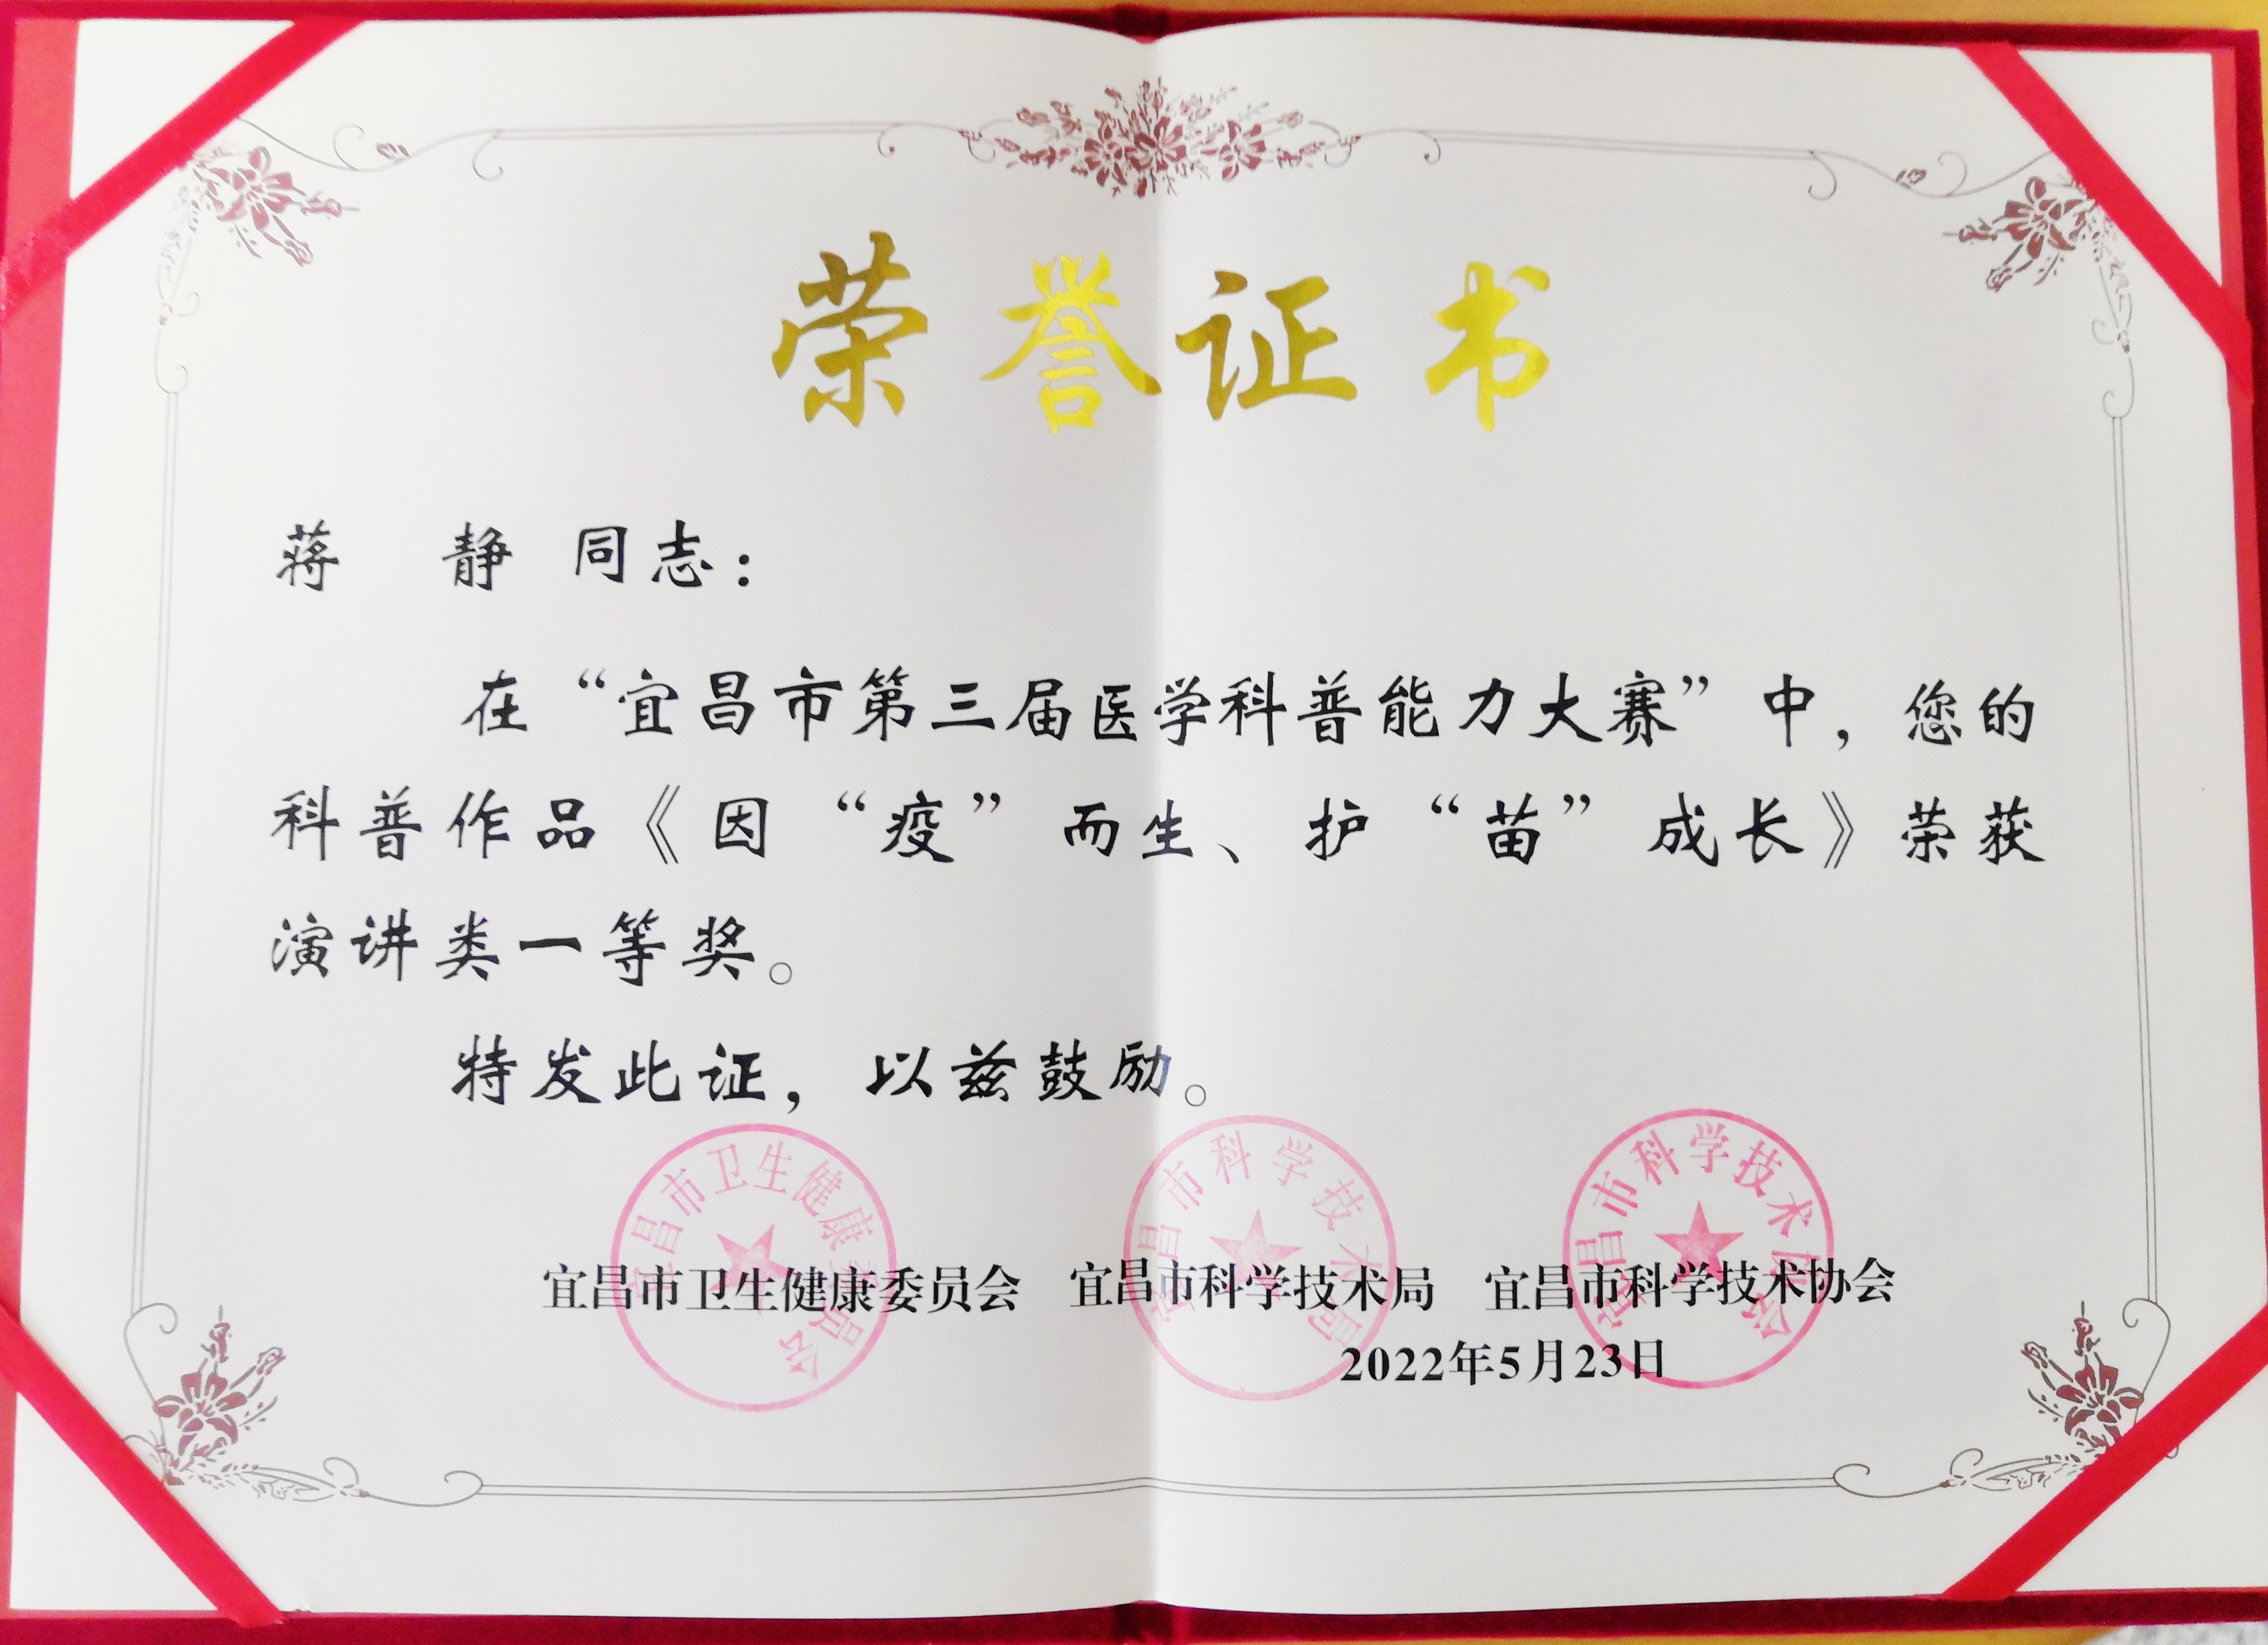 荣誉证书
蒋 静 同志：
在“宜昌市第三届医学科普能力大赛”中，您的
科普作品《因“疫”而生、护“苗”成长》荣获
演讲类一等奖。
特发此证，以兹鼓励。
宜昌市卫生健康委员会 宜昌市科学技术局 宜昌市科学技术协会
2022年5月23日
宜昌市卫生健康委员会
宜昌市科学技术局
宜昌市科学技术协会